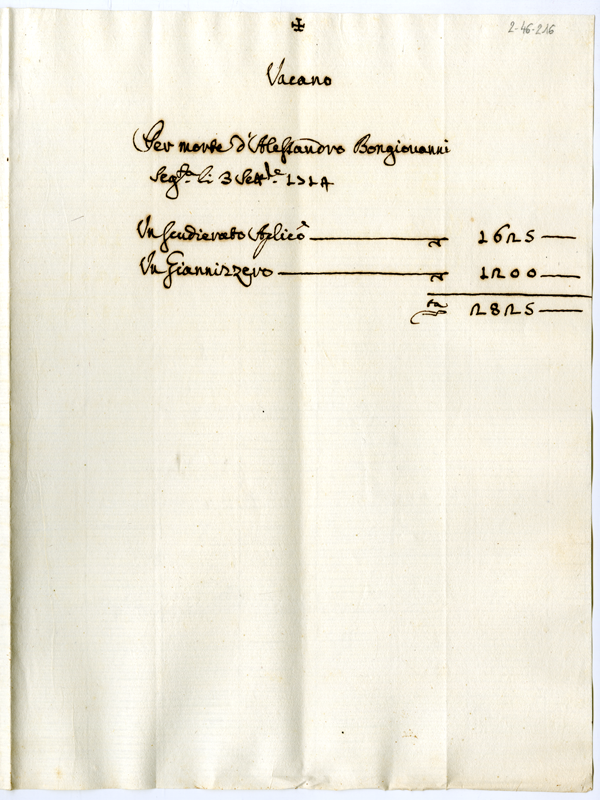 ✠
2-46-216
Vacano
Per morte d'Alessandro Bongiovanni
seg.ta li 3 Sett.e 1714
Un Scudierato Aplic.o 1625
Un Giannizzero 1200
2825